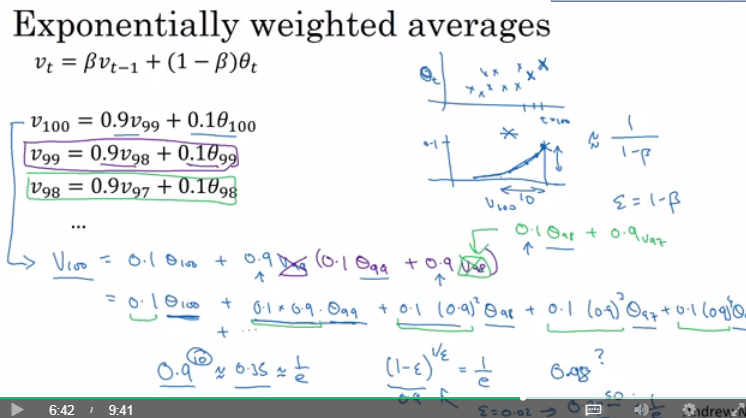 Exponentially weighted averages
vₜ = βvₜ₋₁ + (1 − β)θₜ
θₜ
t=100
v₁₀₀ = 0.9v₉₉ + 0.1θ₁₀₀
v₉₉ = 0.9v₉₈ + 0.1θ₉₉
v₉₈ = 0.9v₉₇ + 0.1θ₉₈
...
0.1
V₁₀₀ 10
≈ 1/(1-β)
ε = 1-β
0.1 θ₉₈ + 0.9 V₉₇
V₁₀₀ = 0.1 θ₁₀₀ + 0.9 V₉₉ (0.1 θ₉₉ + 0.9 V₉₈)
= 0.1 θ₁₀₀ + 0.1 × 0.9 · θ₉₉ + 0.1 (0.9)² θ₉₈ + 0.1 (0.9)³ θ₉₇ + 0.1 (0.9)⁴ θ
+ ...
0.9¹⁰ ≈ 0.35 ≈ 1/e
(1-ε)^(1/ε) = 1/e
0.9
0.98 ?
ε = 0.02 →
6:42 / 9:41
Andrew N